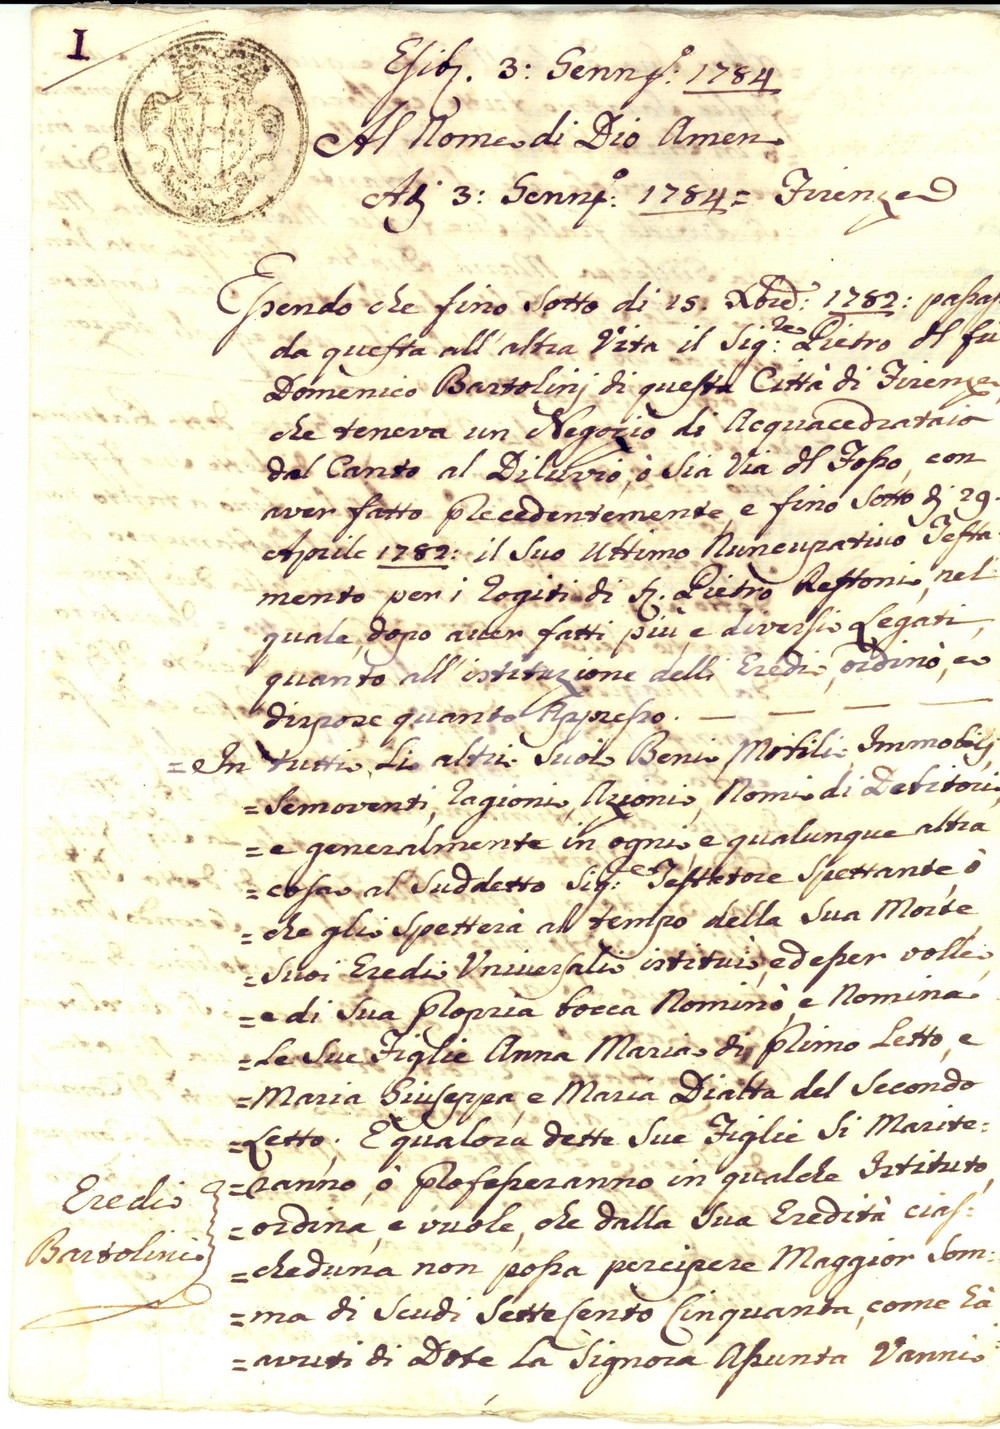 1
Esib. 3: Genn.º: 1784
Al Nome di Dio Amen
Adj 3: Genn.º: 1784 = Firenze
Essendo che fino Sotto di 15. 1782: passas
da questa all'altra Vita il Sig:re Pietro del fu
Domenico Bartolinj di questa Città di Firenze,
che teneva un Negozio di Acquacedrataio
dal Canto al Diluvio, ò sia Via del Fosso, con
aver fatto precedentemente, e fino Sotto dj 29.
Aprile 1782: il Suo Ultimo Nuncupativo Testa-
mento per i Rogiti di Pietro Restoni, nel
quale, dopo aver fatti più, e diversi Legati,
quanto all'istituzione delli Eredi, ordinò, e
dispose quanto Appresso. — — — —
= In tutti Li altri Suoi Beni Mobili Immobilj,
= Semoventi, Ragioni, Azioni, Nomi di Debitori
= e generalmente in ogni, e qualunque altra
= cosa al Suddetto Sig:re Testatore Spettante, ò
= che gli Spetterà al tempo della Sua Morte,
= Suoi Eredi Universali istituì, ed esser volle,
= e di Sua propria bocca Nominò, e Nomina
= Le Sue Figlie Anna Maria di primo Letto, e
= Maria Giuseppa, e Maria Dialta del Secondo
= Letto. E qualora dette Sue Figlie Si Marite:
= ranno, ò Professeranno in qualche Istituto,
= ordina, e vuole, che dalla Sua Eredità cias:
= cheduna non possa percipere Maggior Som:
= ma di Scudi Sette Cento Cinquanta, come Ià
= avuti di Dote La Signora Assunta Vanni
Eredi
Bartolini